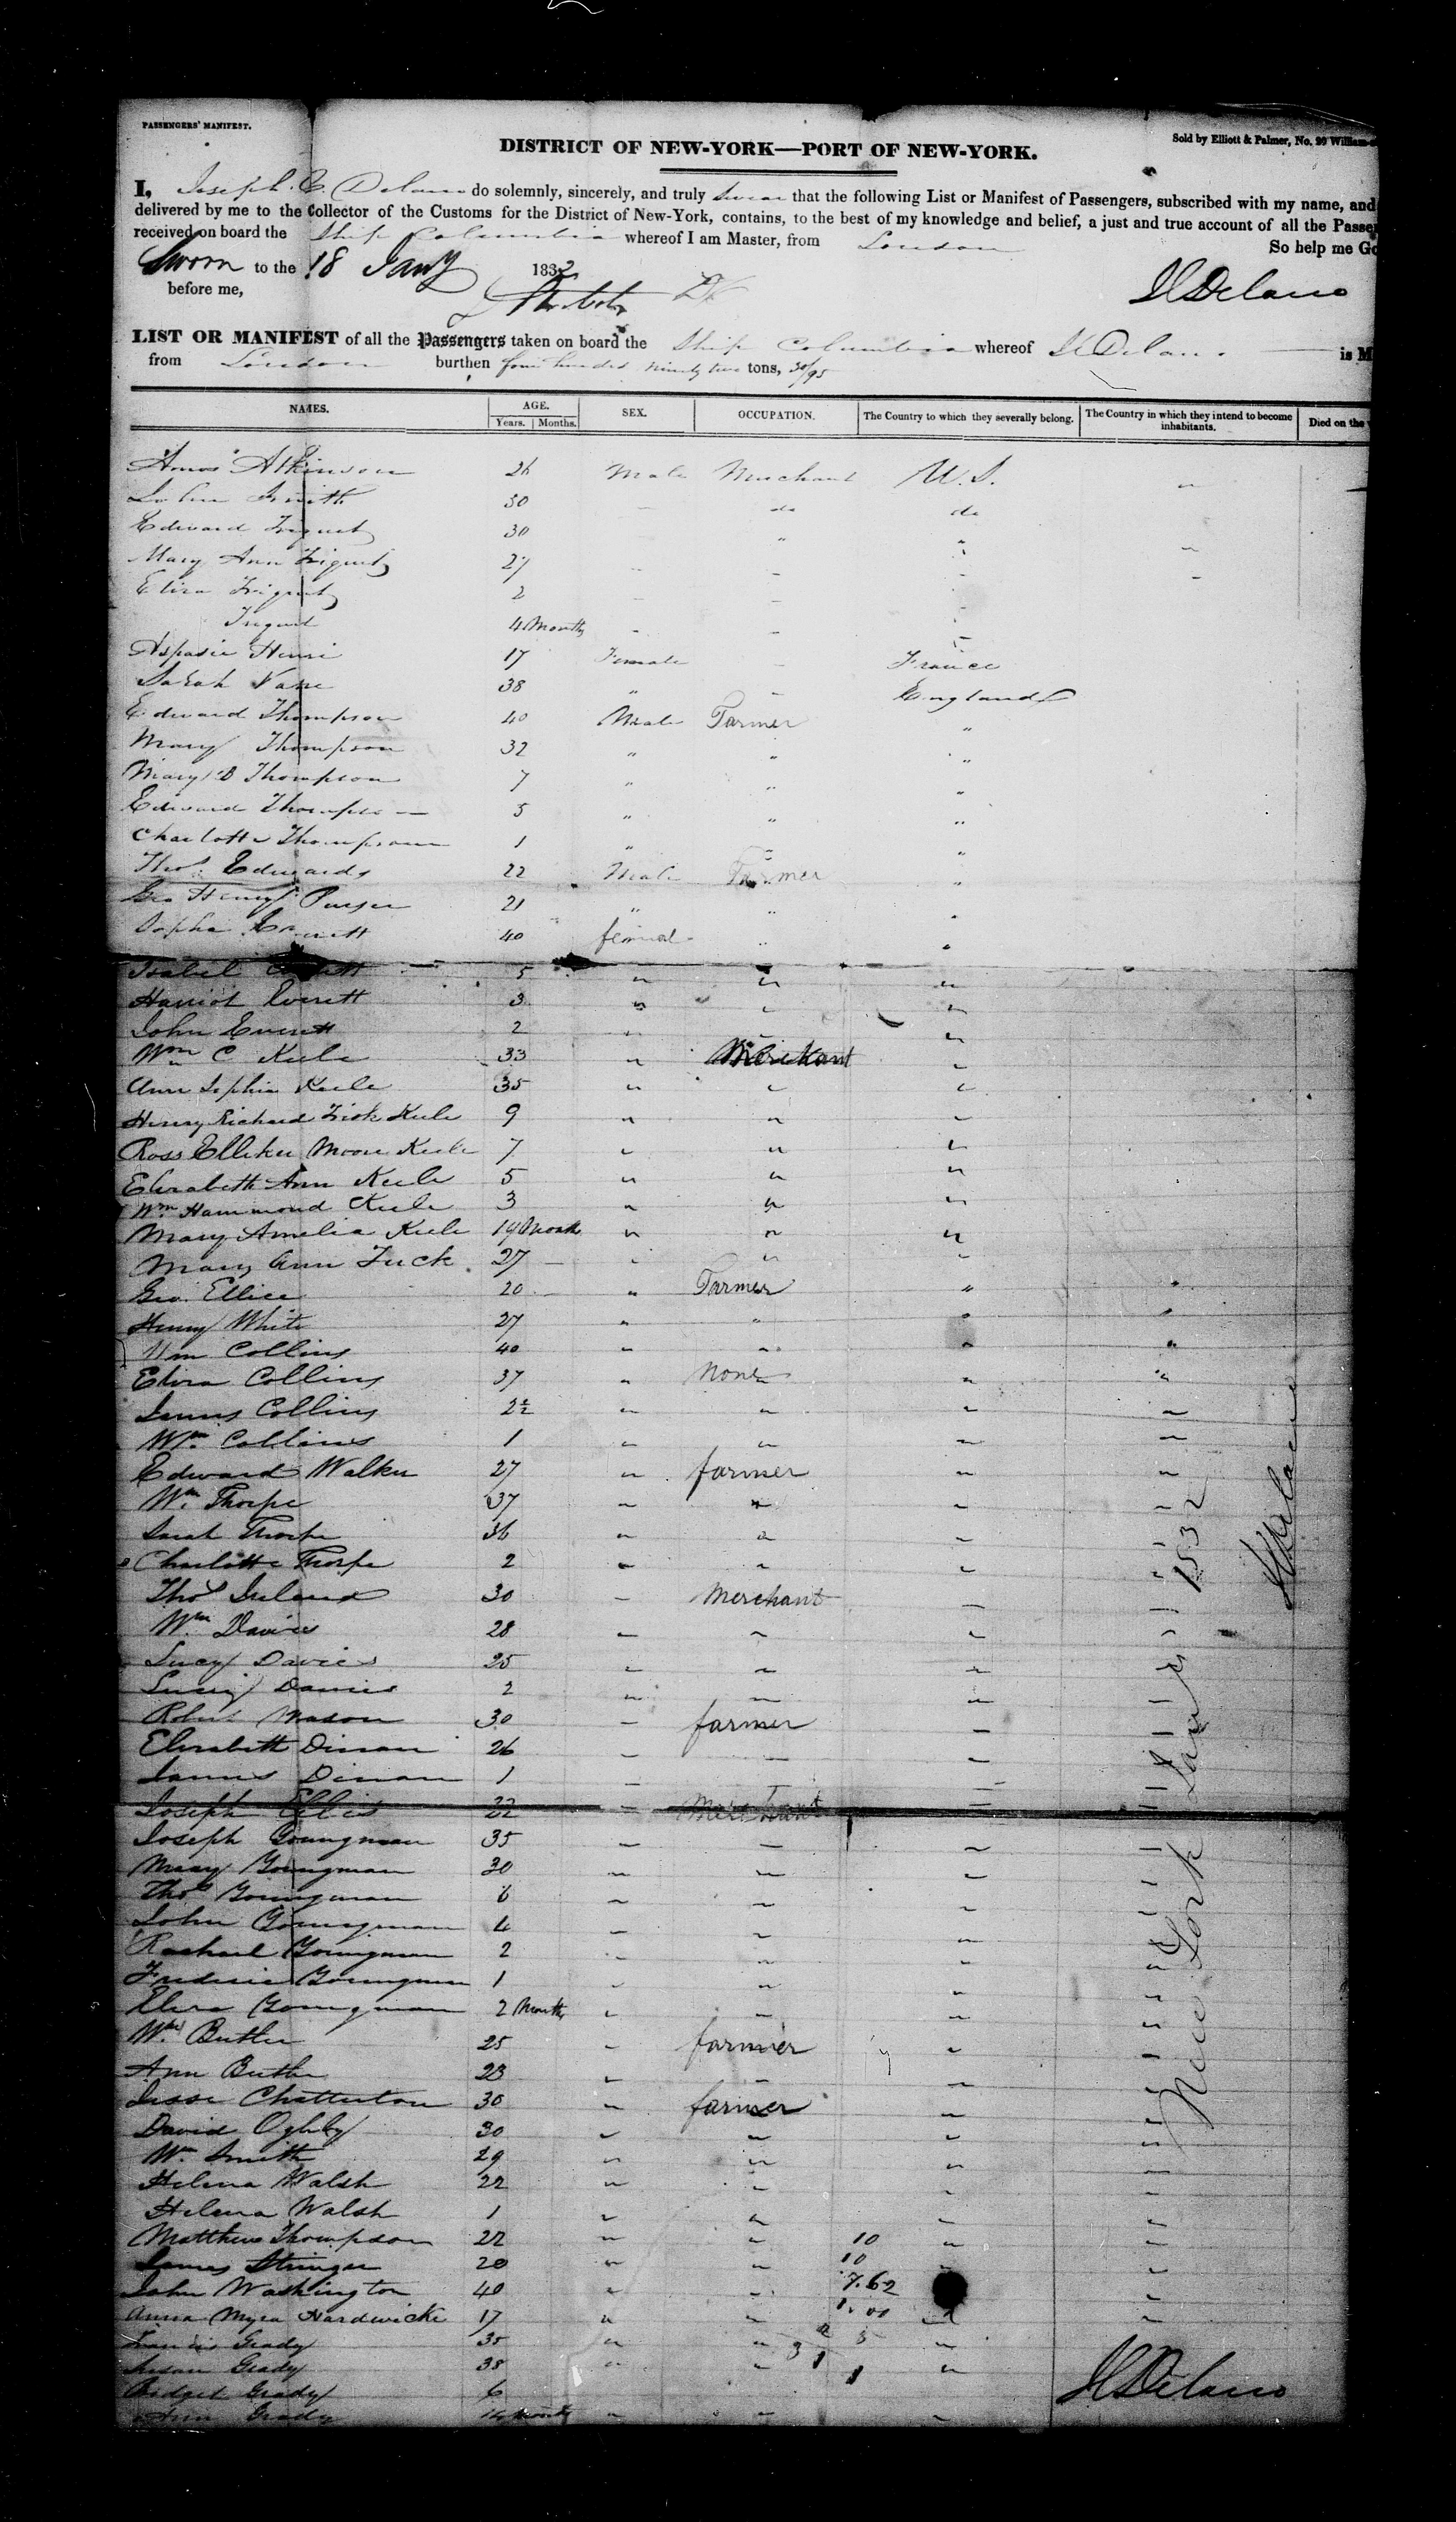 PASSENGERS' MANIFEST.
Sold by Elliott & Palmer, No. 20 William
DISTRICT OF NEW-YORK—PORT OF NEW-YORK.
I, Joseph C Delano do solemnly, sincerely, and truly swear that the following List or Manifest of Passengers, subscribed with my name, and
delivered by me to the Collector of the Customs for the District of New-York, contains, to the best of my knowledge and belief, a just and true account of all the Passen
received on board the Ship Columbia whereof I am Master, from London
So help me Go
Sworn to the 18 Jany 1832
before me,
JCDelano
LIST OR MANIFEST of all the Passengers taken on board the Ship Columbia whereof JCDelano is M
from London burthen four hundred ninety two tons, 30/95
NAMES. AGE. SEX. OCCUPATION. The Country to which they severally belong. The Country in which they intend to become inhabitants. Died on the
Years. Months.
Amos Atkinson 26 Male Merchant U.S. "
John Smith 30 " do do
Edward 30 " "
Mary Ann 27
Eliza 2
4 Months
Aspasie Henri 17 Female France
Sarah Vane 38 " England
Edward Thompson 40 Male Farmer "
Mary Thompson 32 " " "
Mary B Thompson 7 " " "
Edward Thompson 5 " " "
Charlotte Thompson 1 " " "
Thos. Edwards 22 Male Farmer "
Geo Henry 21 " " "
Sophia Everett 40 femal " "
Isabel Everett 5 " " "
Harriot Everett 3 " " "
John Everett 2 " " "
Wm C Keele 33 " Merchant "
Ann Sophia Keele 35 " " "
Henry Richard Keele 9 " " "
Ross Moore Keele 7 " " "
Elizabeth Ann Keele 5 " " "
Wm Hammond Keele 3 " " "
Mary Amelia Keele 19 Month " " "
Mary Ann Tuck 27 " " "
Geo. Ellice 20 " Farmer " "
Henry White 27 " " " "
Wm Collins 40 " " " "
Eliza Collins 37 " None " "
James Collins 2½ " " " "
Wm. Collins 1 " " " "
Edward Walker 27 " farmer " "
Wm. Thorpe 37 " " " "
Sarah Thorpe 36 " " " "
Charlotte Thorpe 2 " " " "
Thos Ireland 30 " Merchant " "
Wm. Davies 28 " " " "
Lucy Davies 25 " " " "
Lucy Davies 2 " " " "
Robert Mason 30 " farmer " "
Elizabeth Dinan 26 " " " "
James Dinan 1 " " "
Joseph Ellis 22 " Merchant " "
Joseph Youngman 35 " " " "
Mary Youngman 30 " " " "
Thos Youngman 6 " " " "
John Youngman 4 " " " "
Rachael Youngman 2 " " " "
Frederic Youngman 1 " " " "
Eliza Youngman 2 Months " " " "
Wm Butler 25 " farmer " "
Ann Butler 23 " " " "
Jesse Chatterton 30 " farmer " "
David 30 " " " "
Wm Smith 29 " " " "
Helena Walsh 22 " " " "
Helena Walsh 1 " " " "
Matthew Thompson 22 " " 10 " "
James Stringer 20 " " 10 "
John Washington 40 " " 7.62 "
Anna Myra Hardwicke 17 " " " "
Francis Grady 35 " " "
Susan Grady 38 " " "
Bridget Grady 6
Ann Grady 14 months " " "
New York Jany 1832
JCDelano
JCDelano